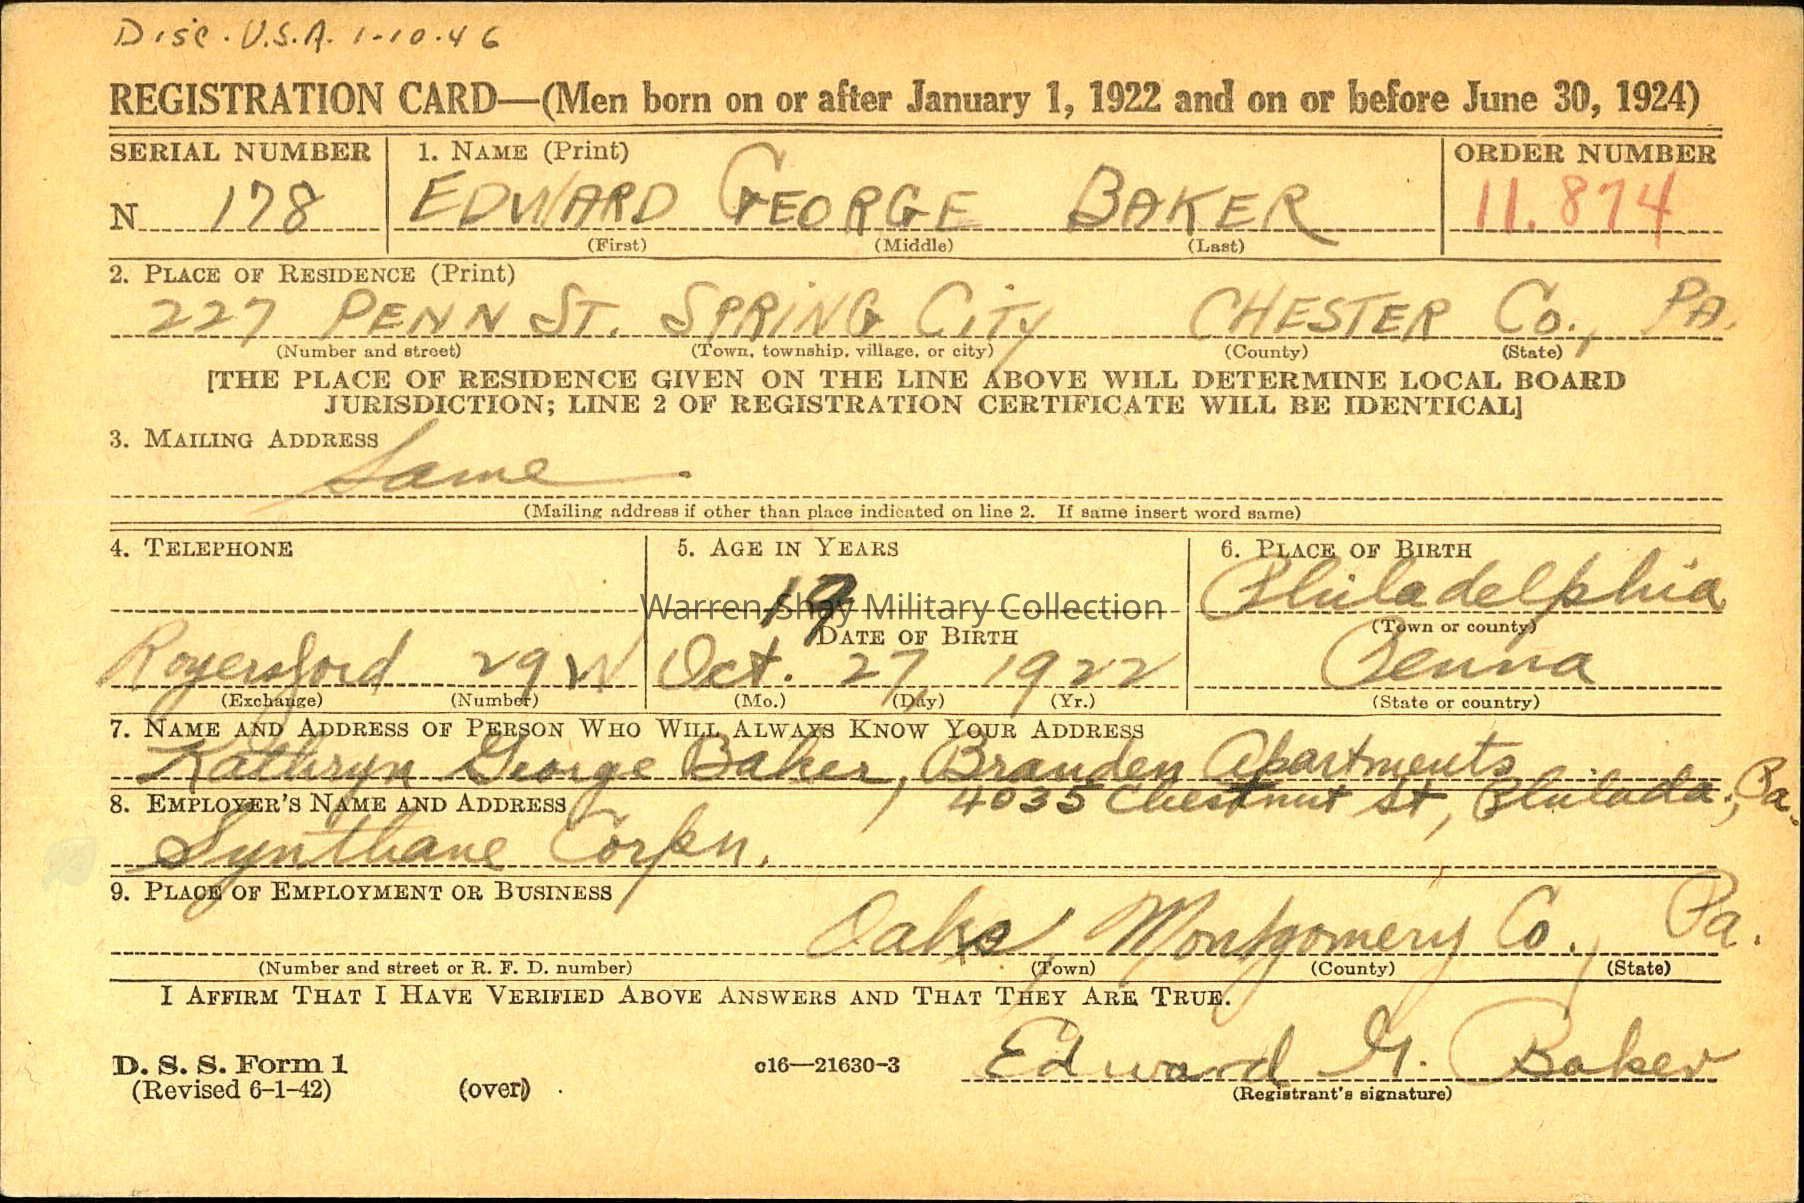 Disc. U.S.A. 1-10-46
REGISTRATION CARD—(Men born on or after January 1, 1922 and on or before June 30, 1924)
SERIAL NUMBER 1. NAME (Print) ORDER NUMBER
N 178 EDWARD GEORGE BAKER 11.874
(First) (Middle) (Last)
2. PLACE OF RESIDENCE (Print)
227 PENN ST. SPRING CITY CHESTER CO., PA.
(Number and street) (Town, township, village, or city) (County) (State)
[THE PLACE OF RESIDENCE GIVEN ON THE LINE ABOVE WILL DETERMINE LOCAL BOARD
JURISDICTION; LINE 2 OF REGISTRATION CERTIFICATE WILL BE IDENTICAL]
3. MAILING ADDRESS
Same
(Mailing address if other than place indicated on line 2. If same insert word same)
4. TELEPHONE 5. AGE IN YEARS 6. PLACE OF BIRTH
19 Philadelphia
Warren Shay Military Collection
DATE OF BIRTH (Town or county)
Royersford 29 W Oct. 27, 1922 Penna
(Exchange) (Number) (Mo.) (Day) (Yr.) (State or country)
7. NAME AND ADDRESS OF PERSON WHO WILL ALWAYS KNOW YOUR ADDRESS
Kathryn George Baker, Branden Apartments
8. EMPLOYER'S NAME AND ADDRESS 4035 Chestnut St, Philada., Pa.
Synthane Corpn.
9. PLACE OF EMPLOYMENT OR BUSINESS
Oaks, Montgomery Co., Pa.
(Number and street or R. F. D. number) (Town) (County) (State)
I AFFIRM THAT I HAVE VERIFIED ABOVE ANSWERS AND THAT THEY ARE TRUE.
Edward G. Baker
D. S. S. Form 1 c16—21630-3
(Revised 6-1-42) (over) (Registrant's signature)